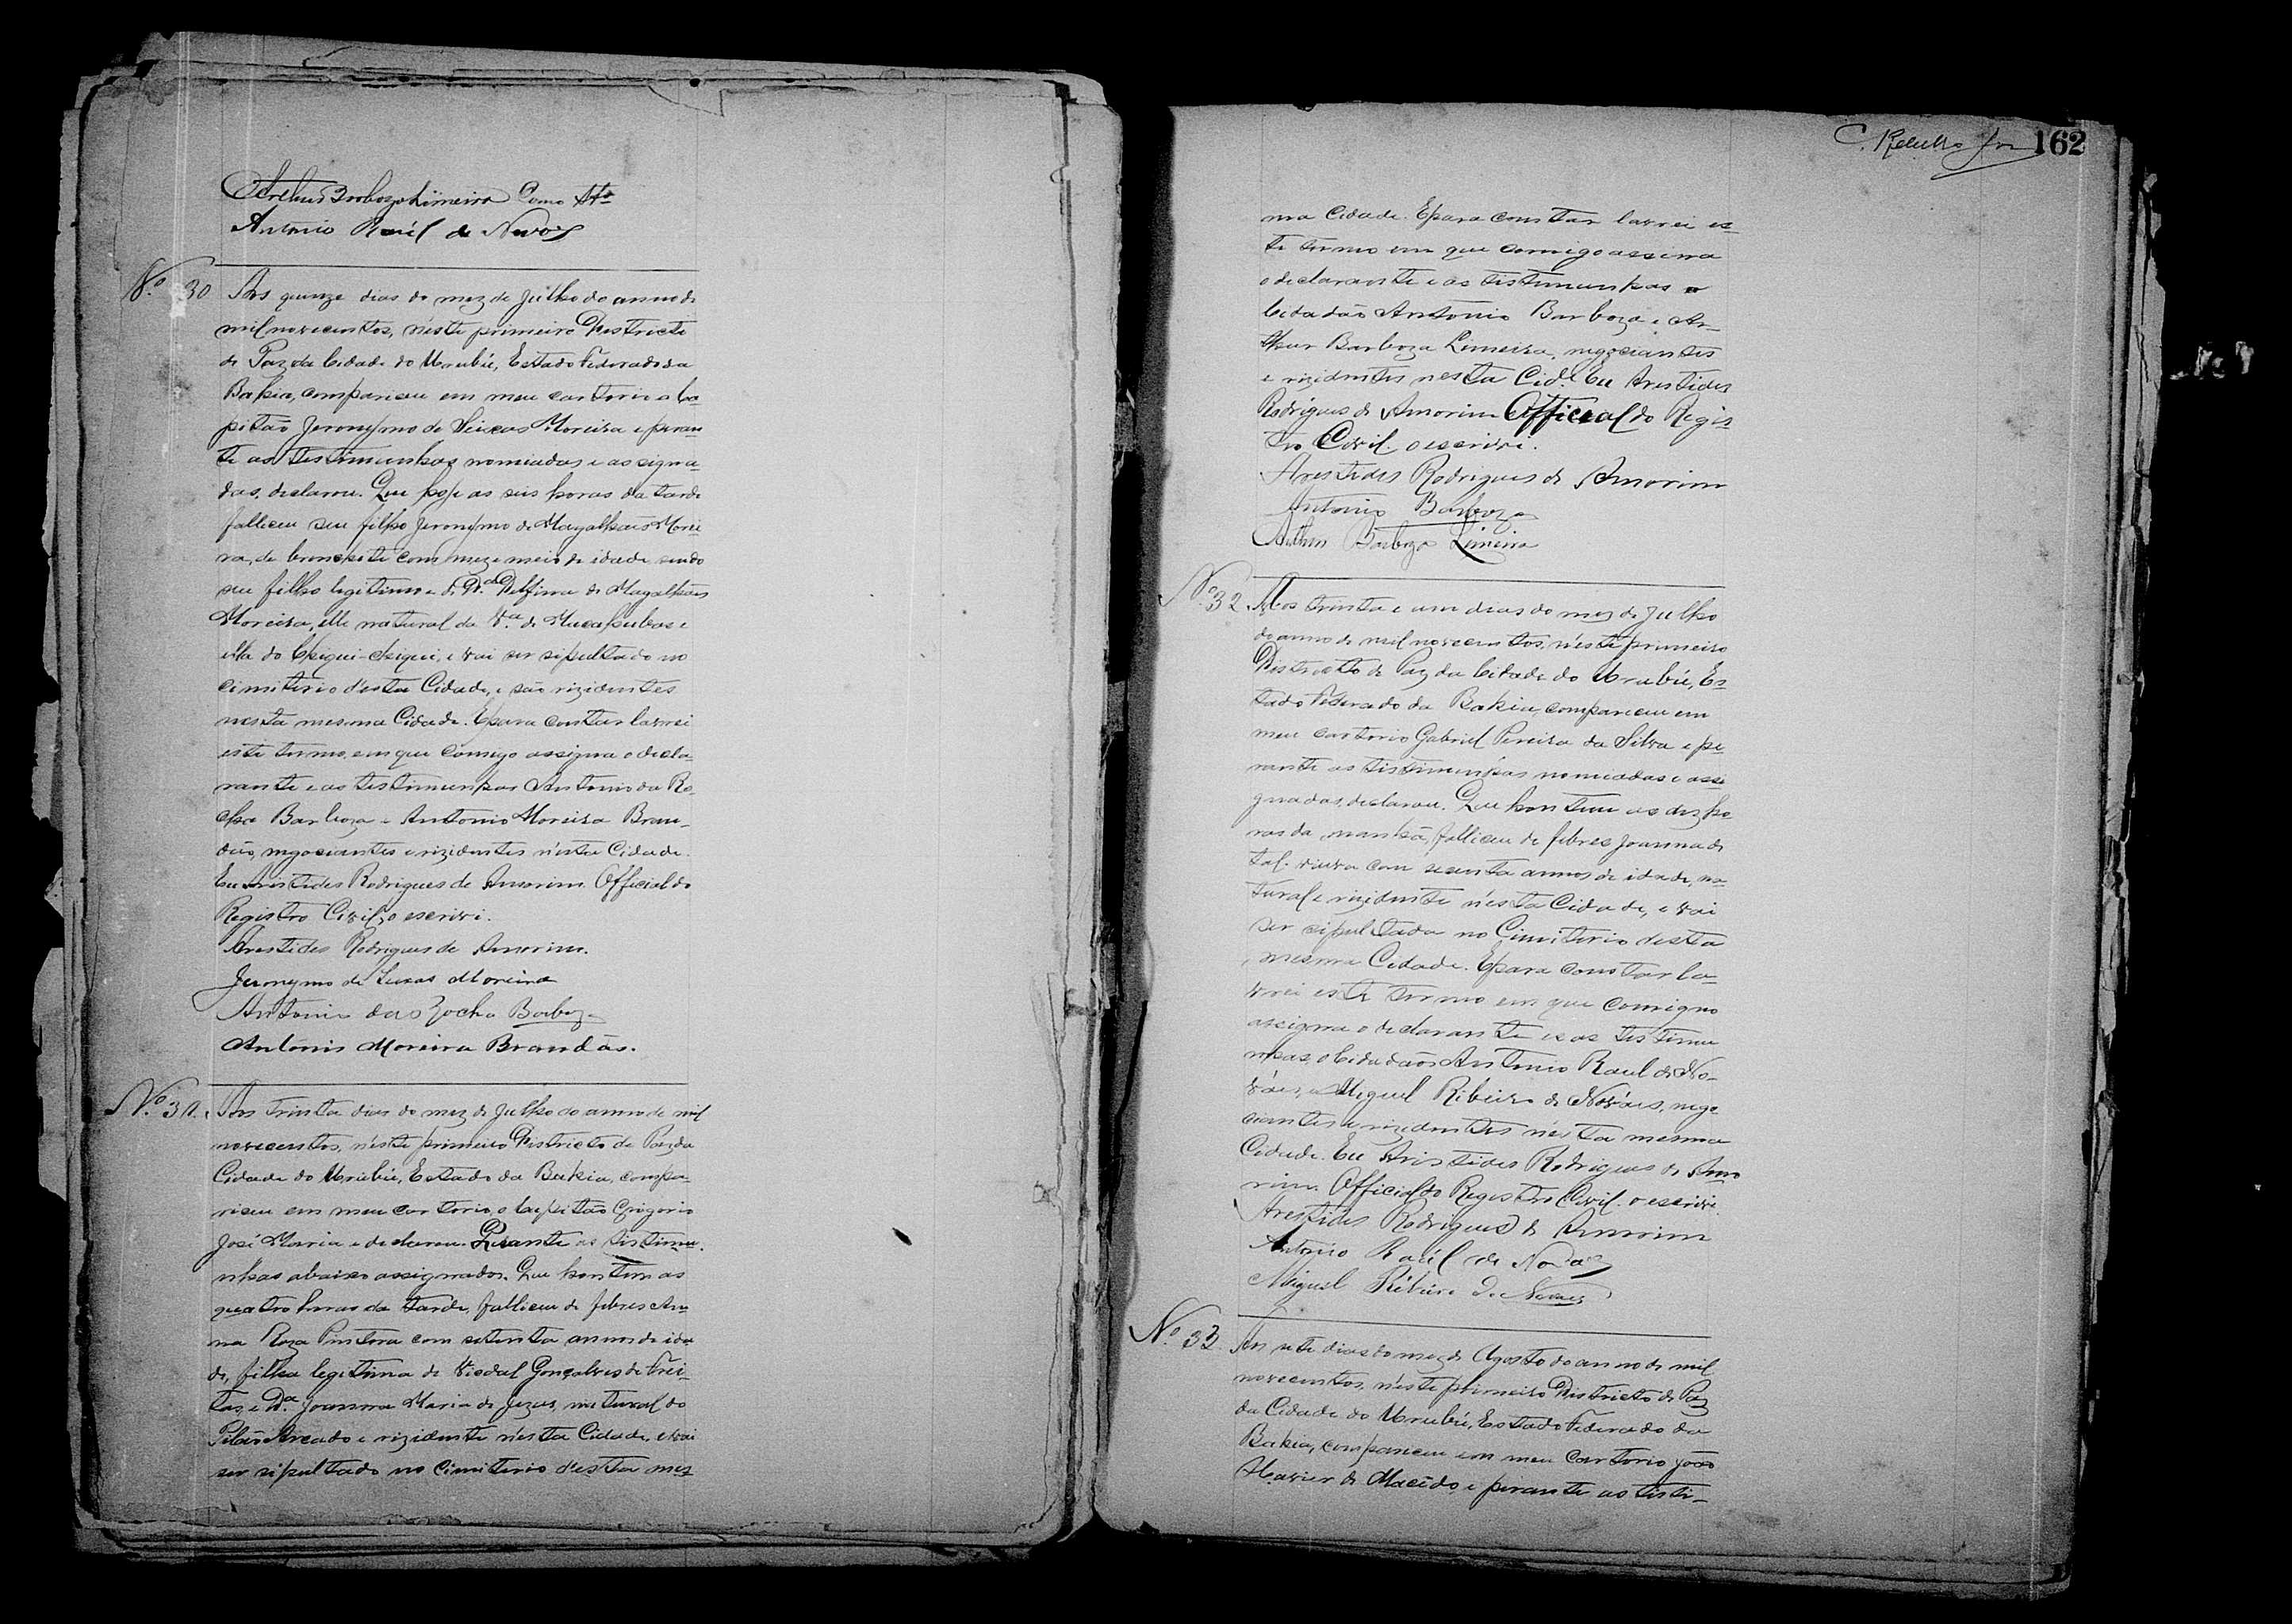 Arthur Barboza Limeira Como Ttª
Antonio Raúl de Novaes
Nº 30 Aos quinze dias do mez de Julho do anno de
mil novecentos, n'este primeiro Destricto
de Paz da Cidade do Urubú, Estado Federado da
Bahia, compariceu em meu cartorio o Ca-
pitão Jeronymo de Seixas Moreira e peran-
te as testimunhas nomiadas e assigna-
das, declarou. Que hoje as seis horas da tarde
falliceu seu filho Jeronymo de Magalhães Morei-
ra, de bronchite com mez e meio de idade sendo
seu filho legitimo e de Dª Delfina de Magalhães
Moreira, elle natural da Vª de Macahubas e
ella do Chique-Chique, e vai ser sipultado no
Cimiterio d'esta Cidade, e são rizidentes
nesta mesma Cidade. E para constar lavrei
este termo, em que comigo assigna o decla-
rante e as testimunhas Antonio da Ro-
cha Barboza e Antonio Moreira Bran-
dão, negociantes e rizidentes n'esta Cidade.
Eu Aristides Rodrigues de Amorim. Official do
Registro Civil, o escrivi.
Aristides Rodrigues de Amorim.
Jeronymo de Seixas Moreira
Antonio da Rocha Barboza
Antonio Moreira Brandão.
Nº 31. Aos trinta dias do mez de Julho do anno de mil
novecentos, n'este primeiro Destricto de Paz da
Cidade do Urubú, Estado da Bahia, compa-
riceu em meu cartorio, o Capitão Grigorio
José Maria e declarou. Perante as tistimu-
nhas abaixo assignados. Que hontem as
quatro horas da tarde, falliceu de febres An-
na Roza Pintora com setenta annos de ida-
de, filha legitima de Viedal Gonçalves de Frei-
tas, e Dª Joanna Maria de Jezus, natural do
Pilão Arcado e rizidente n'esta Cidade, e vai
ser sipultado no Cimiterio d'esta mes-
162
ma Cidade. E para constar lavrei es-
te termo em que comigo assina
o declarante e as tistimunhas o
Cidadão Antonio Barboza e Ar-
thur Barboza Limeira, negociantes
e rizidentes nesta Cidª. Eu Aristides
Rodrigues de Amorim Official do Regis-
tro Civil. o escrivi.
Aristides Rodrigues de Amorim
Antonio Barboza
Arthur Barboza Limeira
Nº 32 Aos trinta e um dias do mez de Julho
do anno de mil novecentos, n'este primeiro
Destricto de Paz da Cidade do Urubú, Es-
tado Federado da Bahia, compariceu em
meu cartorio Gabriel Pereira da Silva e pe-
rante as tistimunhas nomiadas e assi-
gnadas, declarou. Que hontem as dez ho-
ras da manhã, falliceu de febres Joanna de
tal. viuva com secenta annos de idade, na-
tural e rizidente n'esta Cidade, e vai
ser sipultada no Cimiterio desta
mesma Cidade. E para constar la-
vrei este termo em que comigno
assigna o declarante e as tistimu-
nhas, o Cidadãos Antonio Raul de No-
váes, e Miguel Ribeiro de Nováes, nego-
ciantes e rizidentes n'esta mesma
Cidade. Eu Aristides Rodrigues de Amo-
rim. Official do Registro Civil. o escrivi.
Aristides Rodrigues de Amorim
Antonio Raúl de Novaes
Miguel Ribeiro de Novaes
Nº 33 Aos sete dias do mez de Agosto do anno de mil
novecentos, n'este primeiro Districto de Paz
da Cidade do Urubú, Estado Federado da
Bahia, compareceu em meu Cartorio João
Xavier de Macêdo, e perante as tisti-